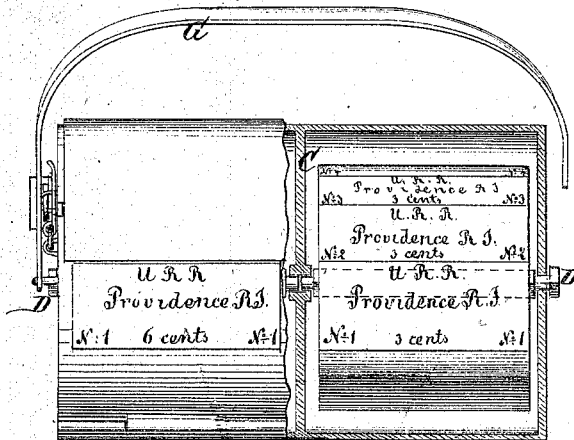 G
C
U. R. R.
Providence R I
No 3 3 cents No 3
U. R. R.
Providence R I.
No 2 3 cents No 2
U. R. R.
Providence R. I.
No 1 3 cents No 1
U R R
Providence R I.
No 1 6 cents No 1
D
D